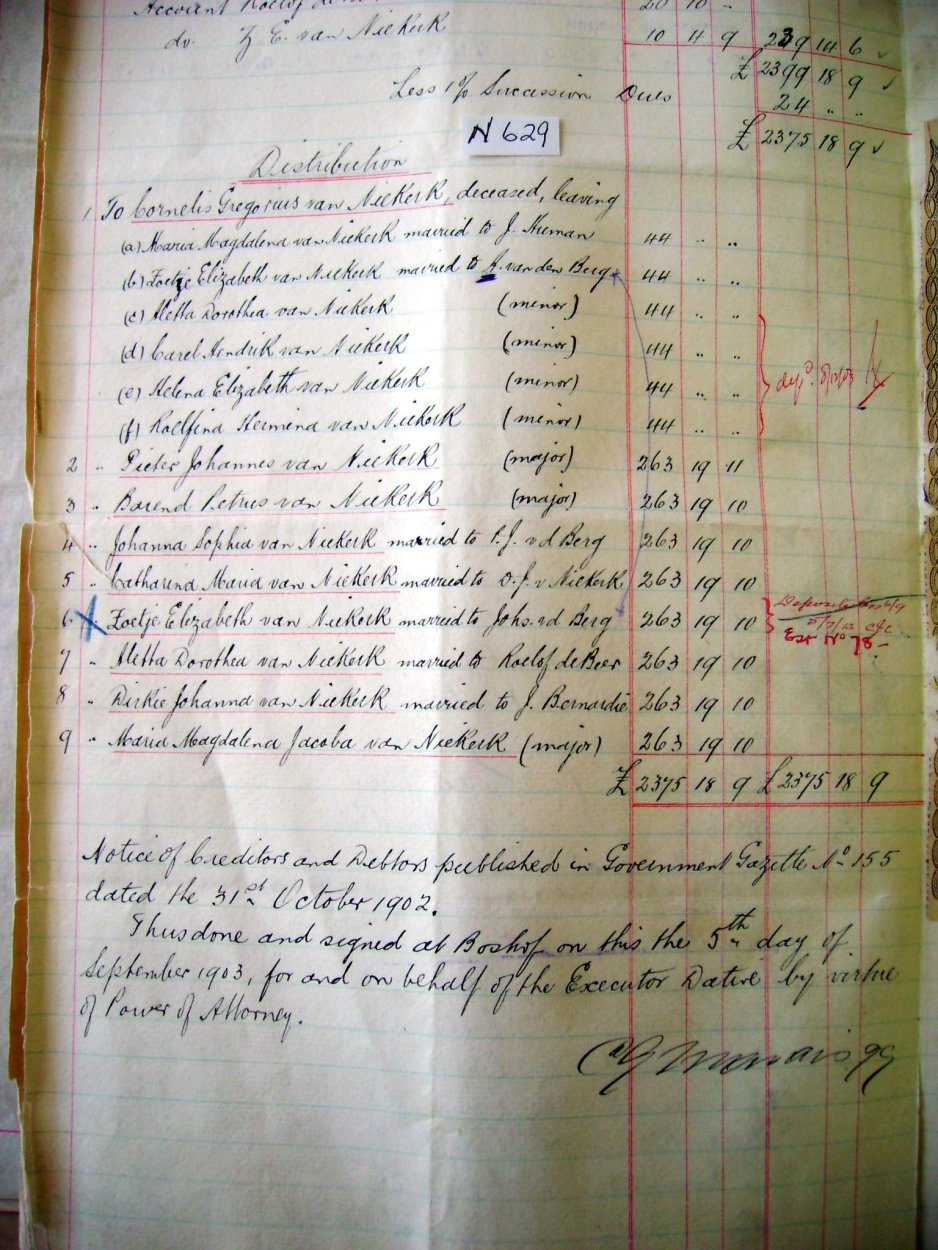 Account Roelof de
20 10 -
do. Z. E. van Niekerk 10 4 9 239 14 6
£ 2399 18 9
Less 1% Succession Dues 24 " "
£ 2375 18 9
N 629
Distribution
1 To Cornelis Gregorius van Niekerk, deceased, leaving
(a) Maria Magdalena van Niekerk married to J. Human 44 " "
(b) Zoetje Elizabeth van Niekerk married to A. van den Berg 44 " "
(c) Aletta Dorothea van Niekerk (minor) 44 " "
(d) Carel Hendrik van Niekerk (minor) 44 " "
(e) Helena Elizabeth van Niekerk (minor) 44 " "
(f) Roelfina Hermina van Niekerk (minor) 44 " "
2 " Pieter Johannes van Niekerk (major) 263 19 11
3 " Barend Petrus van Niekerk (major) 263 19 10
4 " Johanna Sophia van Niekerk married to P. J. v d Berg 263 19 10
5 " Catharina Maria van Niekerk married to D. J. v Niekerk 263 19 10
6 X Zoetje Elizabeth van Niekerk married to Johs. vd Berg 263 19 10
Est No 78-
7 " Aletta Dorothea van Niekerk married to Roelof de Beer 263 19 10
8 " Dirkie Johanna van Niekerk married to J. Bernardie 263 19 10
9 " Maria Magdalena Jacoba van Niekerk (major) 263 19 10
£ 2375 18 9 £ 2375 18 9
Notice of Creditors and Debtors published in Government Gazette No. 155
dated the 31st October 1902.
Thus done and signed at Boshof on this the 5th day of
September 1903, for and on behalf of the Executor Dative by virtue
of Power of Attorney.
Marais qq